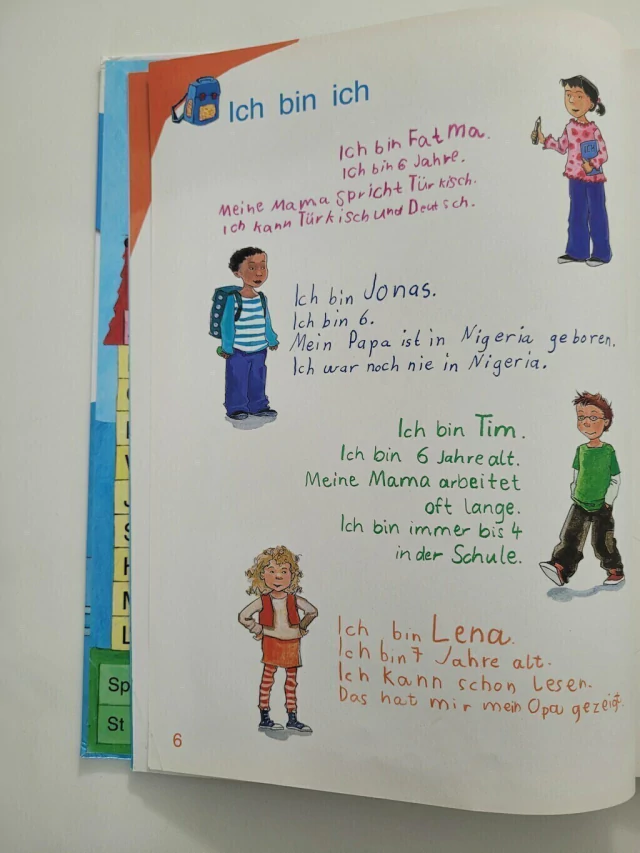 Ich bin ich
Ich bin Fatma.
Ich bin 6 Jahre.
Meine Mama spricht Türkisch.
Ich kann Türkisch und Deutsch.
Ich bin Jonas.
Ich bin 6.
Mein Papa ist in Nigeria geboren.
Ich war noch nie in Nigeria.
Ich bin Tim.
Ich bin 6 Jahre alt.
Meine Mama arbeitet
oft lange.
Ich bin immer bis 4
in der Schule.
Ich bin Lena.
Ich bin 7 Jahre alt.
Ich kann schon lesen.
Das hat mir mein Opa gezeigt.
6
Sp
St